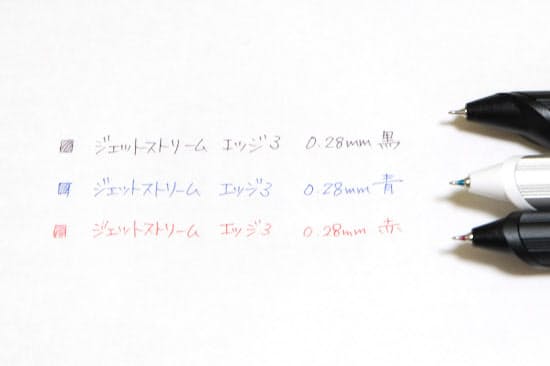 ジェットストリーム エッジ3 0.28mm 黒
ジェットストリーム エッジ3 0.28mm 青
ジェットストリーム エッジ3 0.28mm 赤